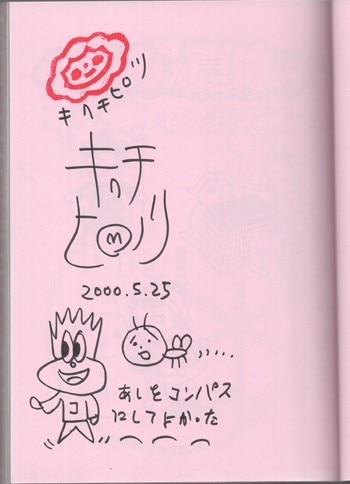 キヘキピツ
キヘチ
ヒ M ソリ
2000.5.25
あしをコンパス
にしてよかった
コ